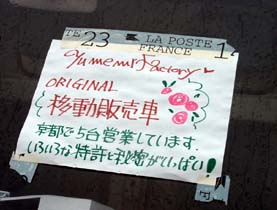 TE 23 LA POSTE 1
FRANCE
yumemi Factory
ORIGINAL
移動販売車
京都で5台営業しています.
いろいろな特許と秘密がいっぱい!